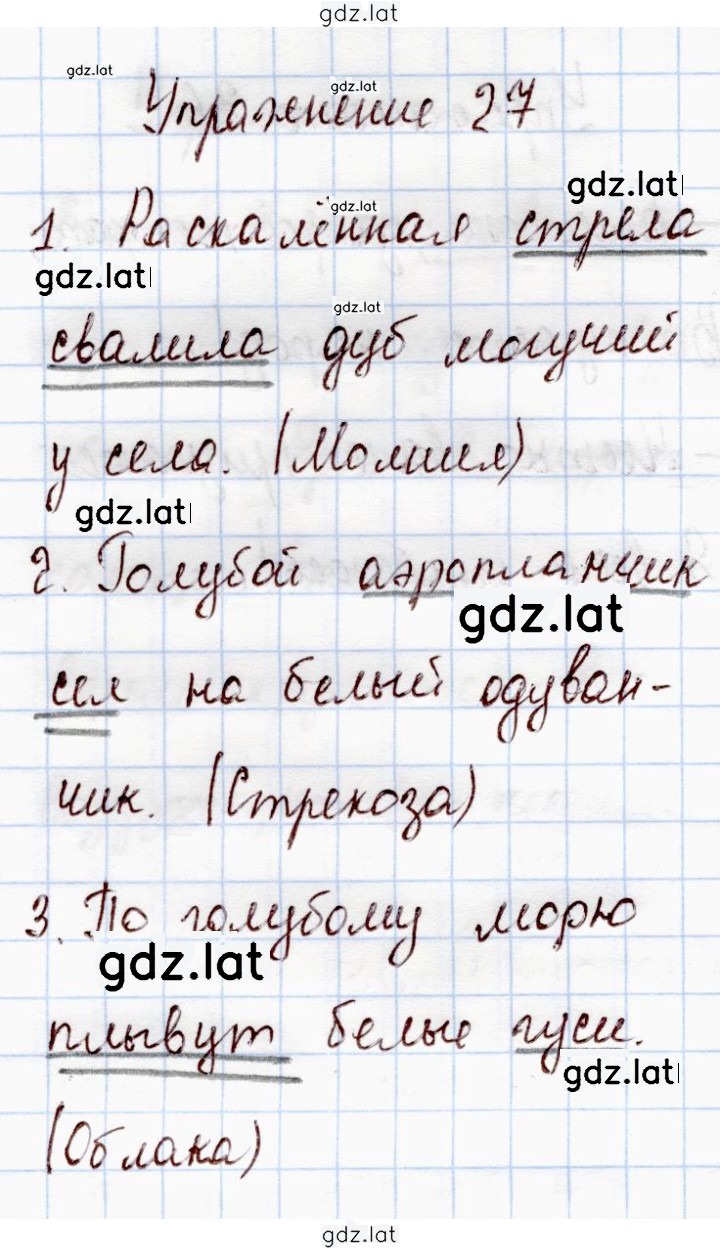 gdz.lat
gdz.lat
gdz.lat
Упражнение 27
gdz.lat
gdz.lat
1. Раскалённая стрела
gdz.lat
gdz.lat
свалила дуб могучий
у села. (Молния)
gdz.lat
2. Голубой аэропланчик
gdz.lat
сел на белый одуван-
чик. (Стрекоза)
3. По голубому морю
gdz.lat
плывут белые гуси.
gdz.lat
(Облака)
gdz.lat